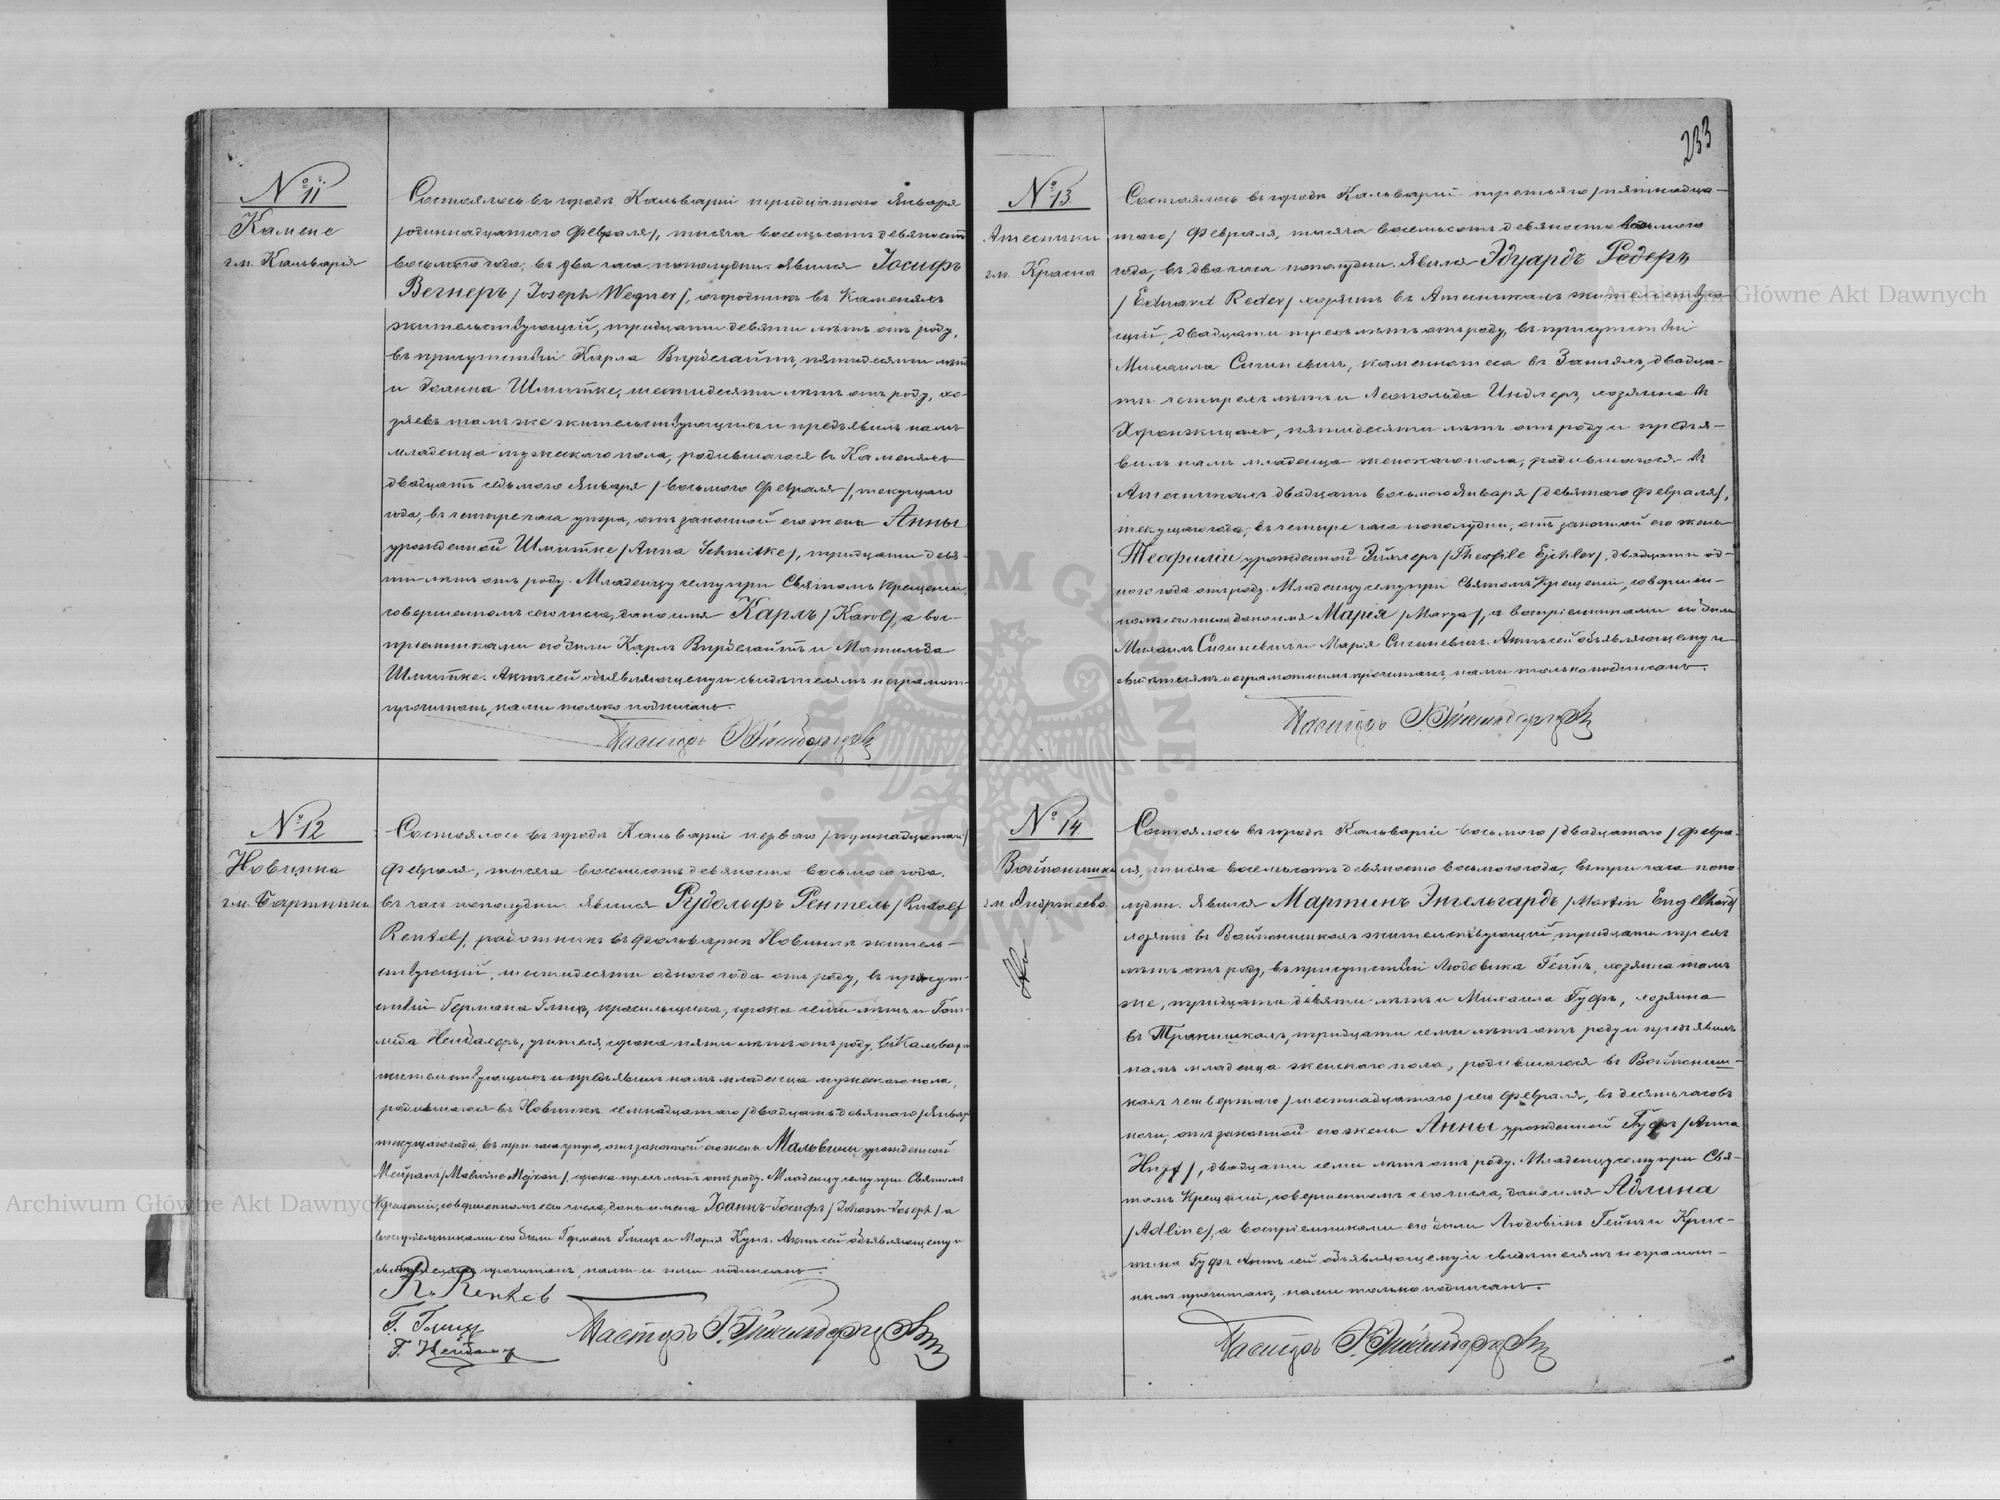 № 11
Камене
гм. Кальварія
Состоялось въ городѣ Кальваріи тридцатаго Января
/одиннадцатаго Февраля/, тысяча восемьсотъ девяносто
восьмого года, въ два часа пополудни. Явился Іосифъ
Вегнеръ /Joseph Wegner/, огородникъ въ Каменяхъ
жительствующій, тридцати девяти лѣтъ отъ роду,
въ присутствіи Карла пятидесяти лѣтъ
и Іоанна Шмитке, шестидесяти лѣтъ отъ роду, хо-
зяевъ тамъ же жительствующихъ и предъявилъ намъ
младенца мужескаго пола, родившагося въ Каменяхъ
двадцать седьмого Января /восьмого Февраля/, текущаго
года, въ четыре часа утра, отъ законной его жены Анны
урожденной Шмитке /Anna Schmitke/, тридцати девя-
ти лѣтъ отъ роду. Младенцу сему при Святомъ Крещеніи,
совершенномъ сего числа, дано имя Карлъ /Karol/, а вос-
пріемниками его были Карлъ и Матильда
Шмитке. Актъ сей объявляющему и свидѣтелямъ неграмот-
прочитанъ, нами только подписанъ.
Пасторъ
№ 12
Новинка
гм. Бартники
Состоялось въ городѣ Кальваріи перваго /тринадцатаго/
Февраля, тысяча восемьсотъ девяносто восьмого года,
въ часъ пополудни. Явился Рудольфъ Рентель /Rudolf
Rentel/, работникъ въ фольваркѣ Новинкѣ житель-
ствующій, шестидесяти одного года отъ роду, въ присут-
ствіи Германа Глицъ, красильщика, сорока семи лѣтъ и Гот-
либа учителя, сорока пяти лѣтъ отъ роду, въ Кальваріи
жительствующихъ и предъявилъ намъ младенца мужескаго пола,
родившагося въ Новинкѣ семнадцатаго /двадцать девятаго/ Января
текущаго года, въ три часа утра, отъ законной его жены Мальвины урожденной
Мейранъ /Malwine Mejran/, сорока трехъ лѣтъ отъ роду. Младенцу сему при Святомъ
Крещеніи, совершенномъ сего числа, даны имена Іоаннъ-Іосифъ /Johann-Joseph/ а
воспріемниками его были Германъ Глицъ и Марія Кунъ. Актъ сей объявляющему и
прочитанъ, нами и ими подписанъ.
Г. Глицъ
Пасторъ
233
№ 13.
гм. Красна
Состоялось въ городѣ Кальваріи третьяго /пятнадца-
таго/ Февраля, тысяча восемьсотъ девяносто восьмого
года, въ два часа пополудни. Явился Эдуардъ Редеръ
/Eduard Reder/ хозяинъ въ жительствую-
щій, двадцати трехъ лѣтъ отъ роду, въ присутствіи
Михаила каменотеса въ двадца-
ти четырехъ лѣтъ и Леопольда хозяина въ
пятидесяти лѣтъ отъ роду и предъя-
вилъ намъ младенца женскаго пола, родившагося въ
двадцать восьмого Января /девятаго Февраля/,
текущаго года, въ четыре часа пополудни, отъ законной его жены
Теофиліи урожденной Эйхлеръ /Theofile Ejchler/, двадцати од-
ного года отъ роду. Младенцу сему при Святомъ Крещеніи, совершен-
номъ сего числа, дано имя Марія /Marya/, а воспріемниками его были
Михаилъ и Марія Актъ сей объявляющему и
свидѣтелямъ неграмотнымъ прочитанъ, нами только подписанъ.
Пасторъ
№ 14.
Войпонишки
гм. Андржеево.
Состоялось въ городѣ Кальваріи восьмого /двадцатаго/ Февра-
ля, тысяча восемьсотъ девяносто восьмого года, въ три часа попо-
лудни. Явился Мартинъ Энгельгардъ /Martin Engelhard/
хозяинъ въ Войпонишкахъ жительствующій, тридцати трехъ
лѣтъ отъ роду, въ присутствіи Людовика Гейнъ, хозяина тамъ
же, тридцати девяти лѣтъ и Михаила Гуфъ, хозяина
въ Тракишкахъ, тридцати семи лѣтъ отъ роду и предъявилъ
намъ младенца женскаго пола, родившагося въ Войпониш-
кахъ четвертаго /шестнадцатаго/ сего Февраля, въ десять часовъ
ночи, отъ законной его жены Анны урожденной Гуфъ /Anna
Huff/, двадцати семи лѣтъ отъ роду. Младенцу сему при Свя-
томъ Крещеніи, совершенномъ сего числа, дано имя Адлина
/Adline/, а воспріемниками его были Людовикъ Гейнъ и Крис-
тина Гуфъ. Актъ сей объявляющему и свидѣтелямъ неграмот-
нымъ прочитанъ, нами только подписанъ.
Пасторъ
Archiwum Główne Akt Dawnych
Archiwum Główne Akt Dawnych
ARCHIWUM GŁÓWNE AKT DAWNYCH